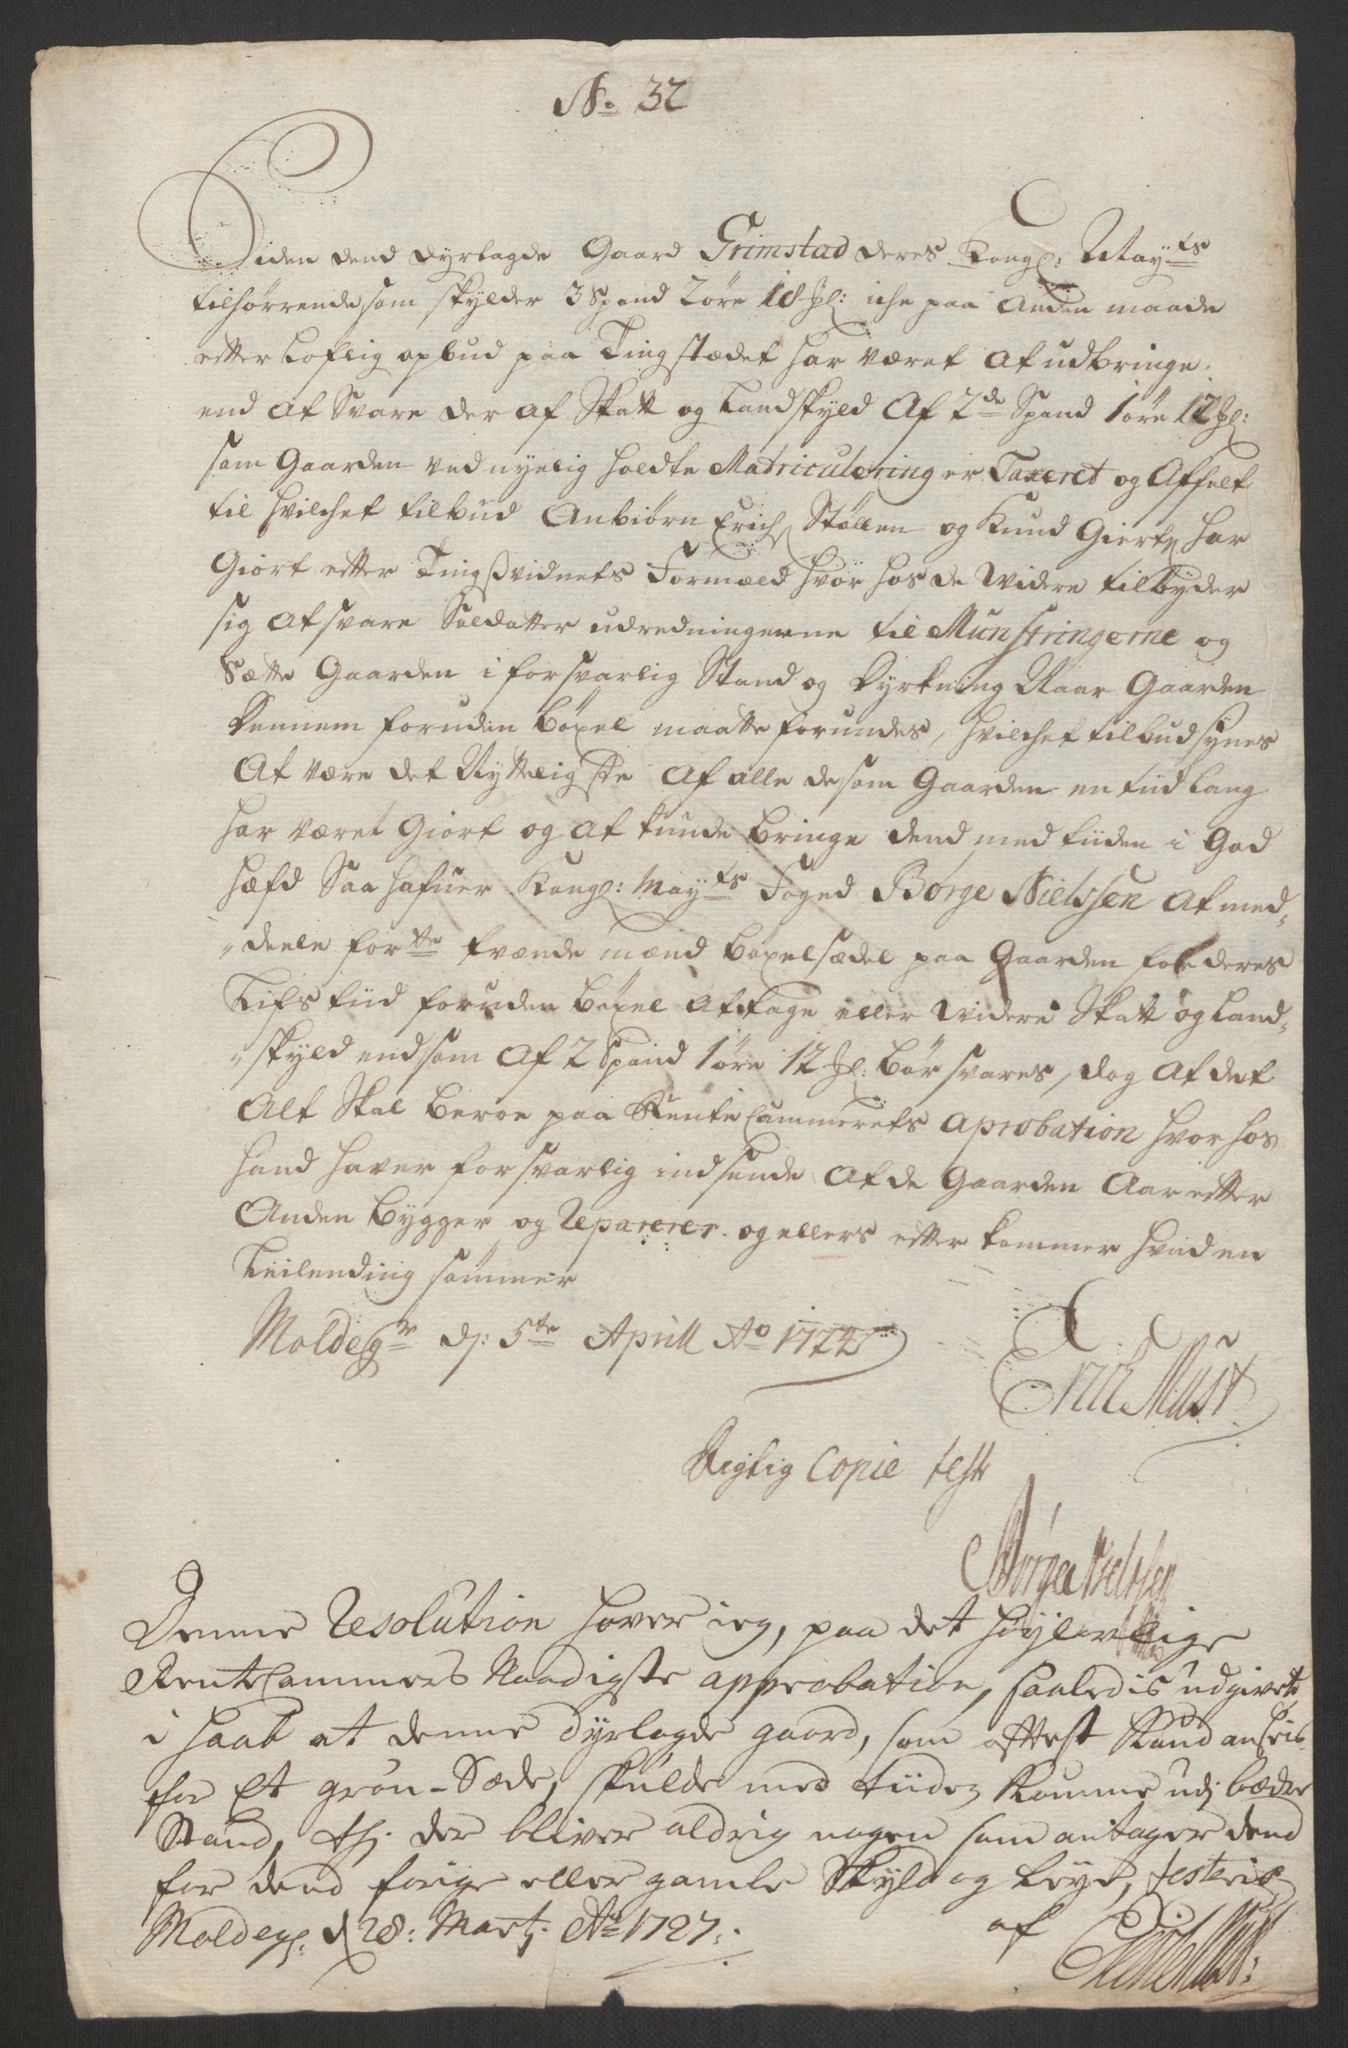 No. 32
Siden dend Øyelagde Gaard Grimstad deres Kongl: Mayts
tilhørrende, som skylder 3 Spand 2 øre 18 Ml: iche paa Anden maade
etter Loflig opbud paa Tingstædet har været At udbringe,
end At Svare der af Skatt og Landskyld Af 2de Spand 1 øre 12 Ml:
som Gaarden ved nyelig holdte Matriculering er Taxeret og Affelt
til hvilchet tilbud Anbiørn Erichs Støllen og Knud Giertz har
Giort etter Tingsvidnets Formæld hvor hos de Widere tilbyder
sig At svare Soldatter udredningerne til Munstringerne og
Sætte Gaarden i forsvarlig Stand og Dyrkning Naar Gaarden
Dennem foruden böxel maatte forundes, hvilchet tilbud synes
At være det Nyttligste Af alle de som Gaarden en tiid lang
har været Giort og At kunde bringe dend med tiiden i God
hæfd Saa hafuer Kongl: Mayts Foged Børge Nielssen At med-
-deele forte tvænde mænd böxelsædel paa Gaarden for deres
Lifs tiid foruden böxel At tage eller Widere Skatt og Land-
-skyld end som Af 2 Spand 1 øre 12 Ml: bør svares, dog At det
Alt Skal beroe paa Rente Cammerets Aprobation hvor hos
hand haver forsvarlig indseende At de Gaarden Aar etter
Anden bygger og Reparerer og ellers etter kommer hvad en
Leilending sømmer
Moldegr d: 5te Aprill Ao 1724
Erich Must
Rigtig Copie test
Børge Nielssen
Denne Resolution haver ieg, paa det høylovlige
RenteCammers Naadigste approbation, saaledis udgivet
i haab at denne Øyelagde gaard, som oftest Kand ansees
for Et grøn-Sæde, skulde med tiiden komme udj bædre
Stand, thj der bliver aldrig nogen som antager dend
for dend forige eller gamle Skyld og Leye, testerer
Moldegr. d 28: Martj Ao 1727: af
Erich Must: